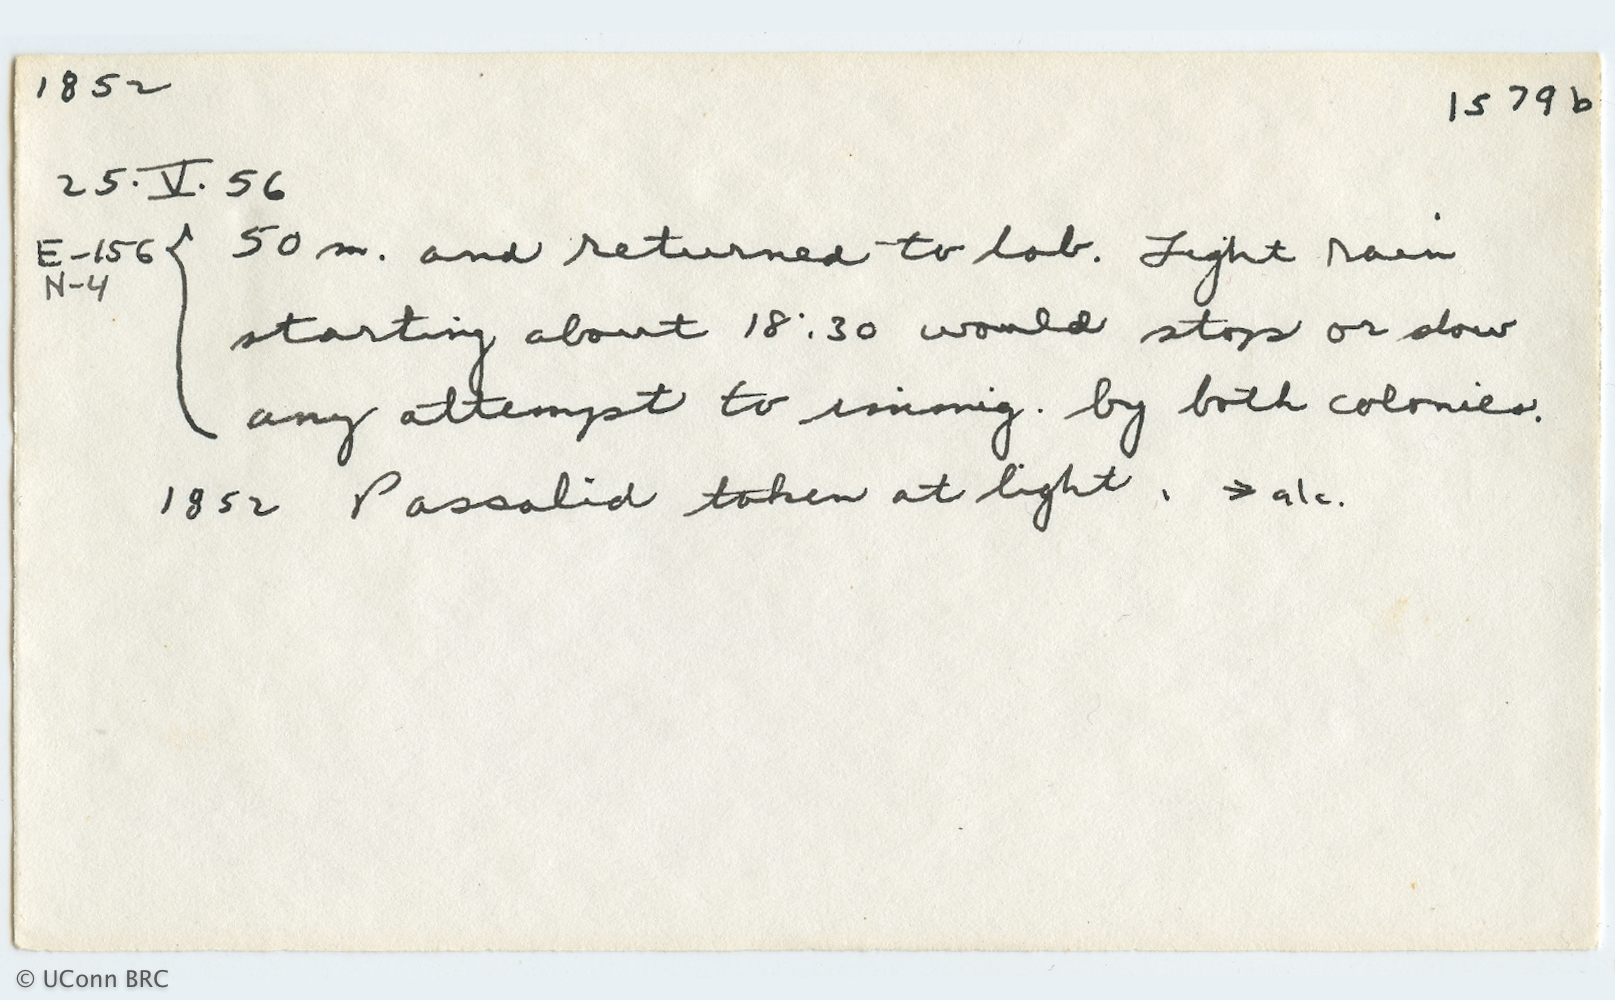 1852
1579b
25·V·56
E-156 { 50 m. and returned to lab. Light rain
N-4
starting about 18:30 would stop or slow
any attempt to emig. by both colonies.
1852 Passalid taken at light. → alc.
© UConn BRC